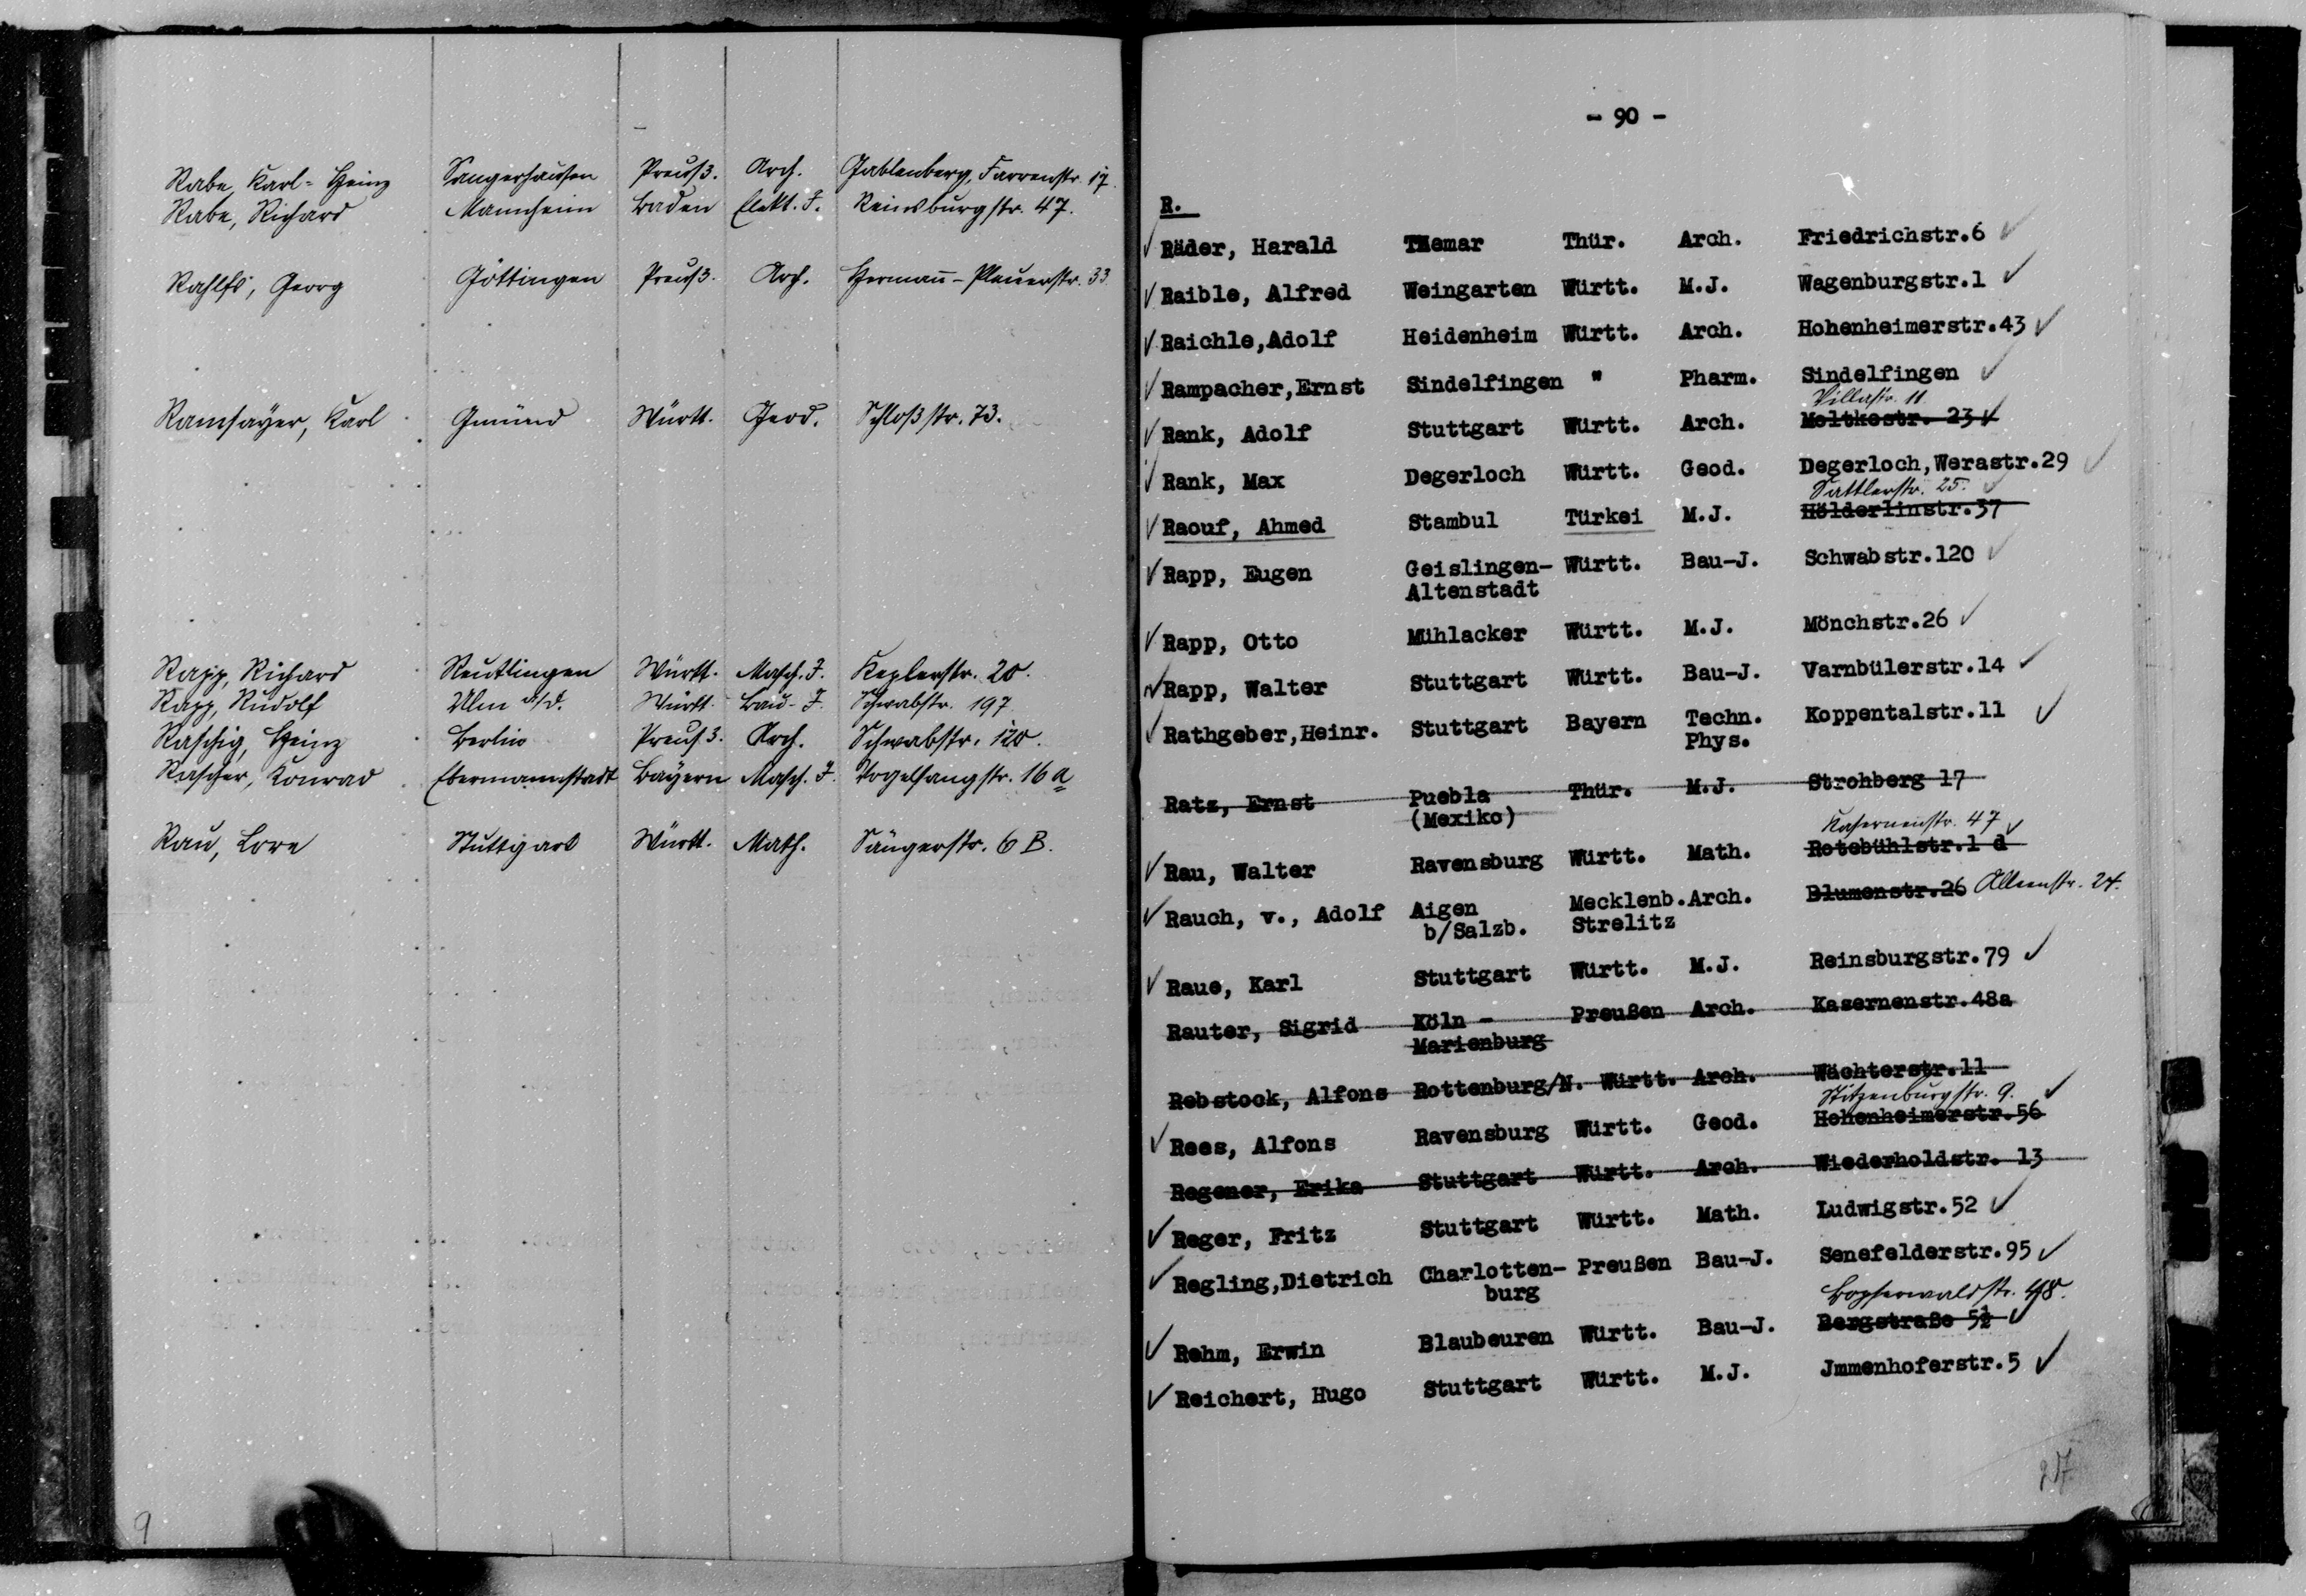 Rabe, Karl-Heinz Sangerhausen Preuß. Arch. Gablenberg, Farrenstr. 17.
Rabe, Richard Mannheim Baden Elekt. I. Reinsburgstr. 47.
Rahlfs, Georg Göttingen Preuß. Arch. Hermann-Pleuerstr. 33
Ramsayer, Karl Gmünd Württ. Geod. Schloßstr. 73.
Rapp, Richard Reutlingen Württ. Masch. I. Keplerstr. 20.
Rapp, Rudolf Ulm a/D. Württ. Bau-I. Schwabstr. 197
Raschig, Heinz Berlin Preuß. Arch. Schwabstr. 120.
Rascher, Konrad Ebermannstadt Bayern Masch. I. Vogelsangstr. 16 a
Rau, Lore Stuttgart Württ. Math. Sängerstr. 6 B.
9
- 90 -
R.
Räder, Harald Themar Thür. Arch. Friedrichstr.6
Raible, Alfred Weingarten Württ. M.J. Wagenburgstr.1
Raichle,Adolf Heidenheim Württ. Arch. Hohenheimerstr.43
Rampacher,Ernst Sindelfingen " Pharm. Sindelfingen
Villastr. 11
Rank, Adolf Stuttgart Württ. Arch. Moltkestr. 23
Rank, Max Degerloch Württ. Geod. Degerloch,Werastr.29
Sattlerstr. 25.
Raouf, Ahmed Stambul Türkei M.J. Hölderlinstr.37
Rapp, Eugen Geislingen- Württ. Bau-J. Schwabstr.120
Altenstadt
Rapp, Otto Mühlacker Württ. M.J. Mönchstr.26
Rapp, Walter Stuttgart Württ. Bau-J. Varnbülerstr.14
Rathgeber,Heinr. Stuttgart Bayern Techn. Koppentalstr.11
Phys.
Ratz, Ernst Puebla Thür. M.J. Strohberg 17
(Mexiko)
Kasernenstr. 47
Rau, Walter Ravensburg Württ. Math. Rotebühlstr.1 d
Rauch, v., Adolf Aigen Mecklenb.Arch. Blumenstr.26 Alleenstr. 24.
b/Salzb. Strelitz
Raue, Karl Stuttgart Württ. M.J. Reinsburgstr.79
Rauter, Sigrid Köln - Preußen Arch. Kasernenstr.48a
Marienburg
Rebstock, Alfons Rottenburg/N. Württ. Arch. Wächterstr.11
Stitzenburgstr. 9.
Rees, Alfons Ravensburg Württ. Geod. Hohenheimerstr.56
Regener, Erika Stuttgart Württ. Arch. Wiederholdstr. 13
Reger, Fritz Stuttgart Württ. Math. Ludwigstr.52
Regling,Dietrich Charlotten- Preußen Bau-J. Senefelderstr.95
burg
Bopserwaldstr. 48.
Rehm, Erwin Blaubeuren Württ. Bau-J. Bergstraße 5½
Reichert, Hugo Stuttgart Württ. M.J. Jmmenhoferstr.5